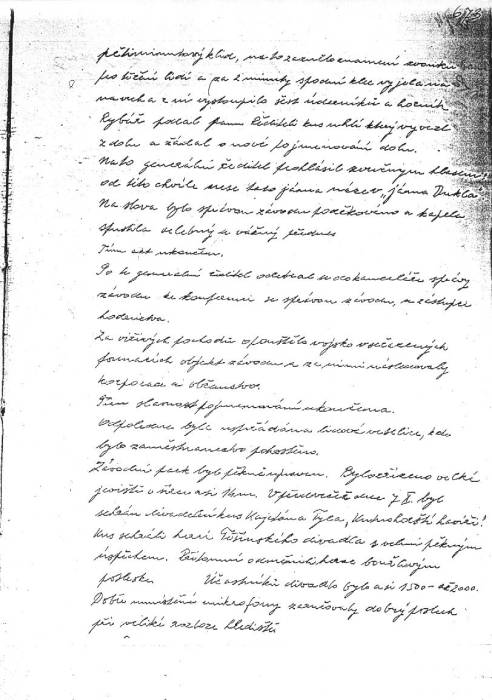 673
pětiminutový klid, na to zaznělo znamení zvonku
pro těžení lidí a za 2 minuty spodní klec vyjela na
na vrch a z ní vystoupilo šest úderníků a horník
Rybář podal panu řediteli kus uhlí který vyvezl
z dolu a žádal o nové pojmenování dolu.
Na to generální ředitel prohlásil zvučným hlasem:
od této chvíle nese tato jáma název "jáma Dukla"
Na slova bylo správou závodu poděkováno a kapela
spustila velebný a vážný přednes
Tím akt ukončen.
Po te generální ředitel odebral se do kanceláře správy
závodu ke konferenci se správou závodu, a zástupce
hodnictva.
Za vířivých pochodů opouštělo vojsko v sevřených
formacích objekt závodu a za nimi následovaly
korporace a občanstvo.
Tím slavnost pojmenování ukončena.
Odpoledne byla uspořádána lidová veselice, kde
bylo zaměstnanectvo pohoštěno.
Závodní park byl pěkně upraven. Bylo zřízeno velké
jeviště o šířce asi 14 m. V předvečer dne 7. X. byl
sehrán divadelní kus Kajetána Tyla, Kutnohorští havíři!
Kus sehráli herci Těšínského divadla s velmi pěkným
úspěchem. Přítomní odměnili herce bouřlivým
potleskem Účastníků divadla bylo asi 1500-až 2000.
Dobře umístění mikrofony zaručovaly dobrý poslech
při veliké rozloze hlediště